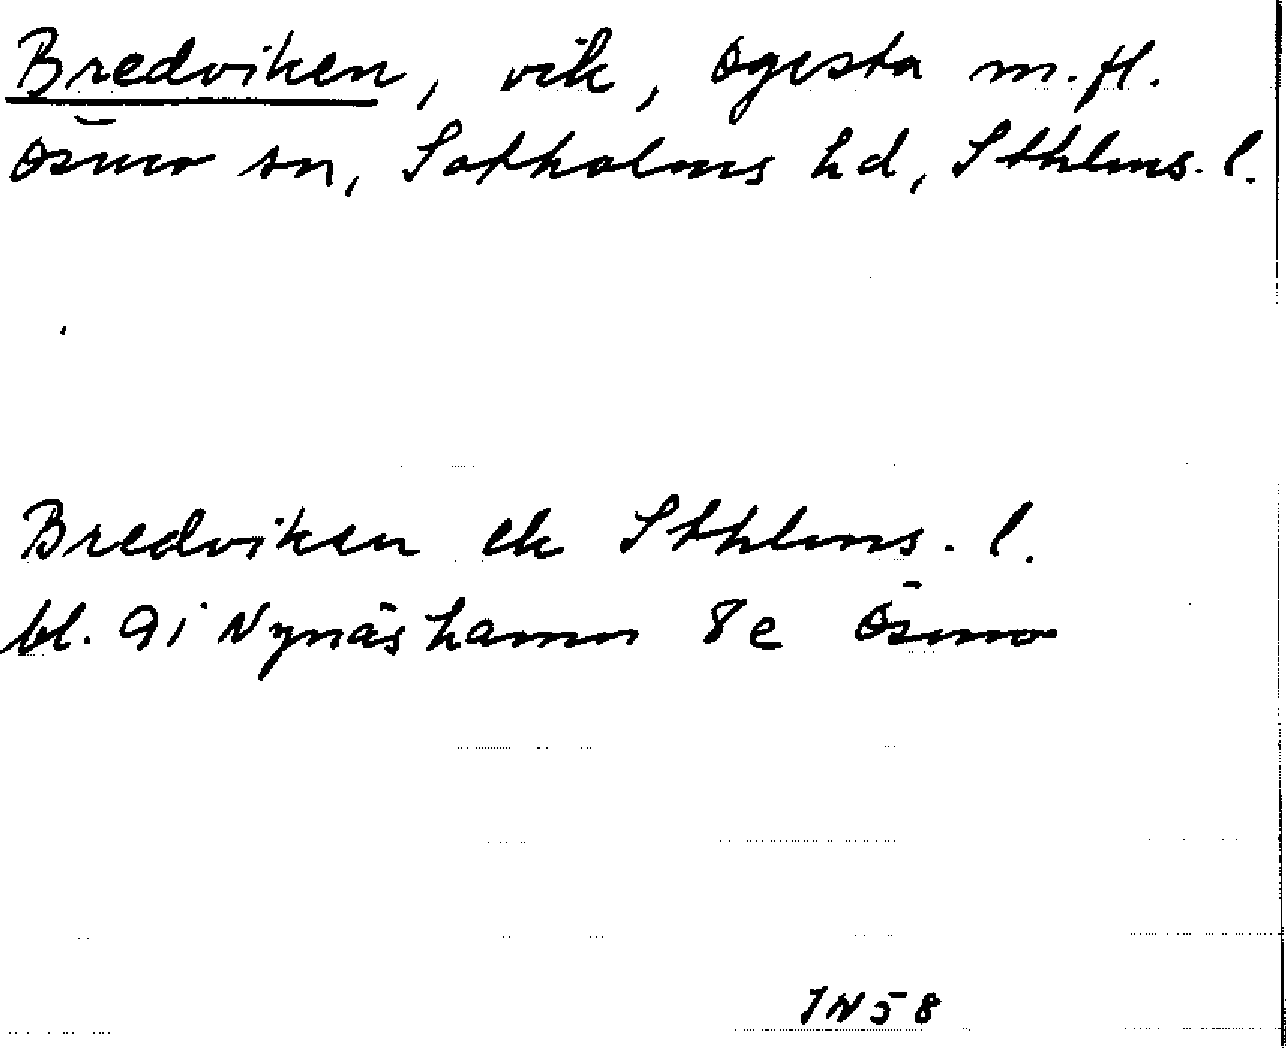 Bredviken, vik, Ogesta m.fl.
Ösmo sn, Sotholms hd, Sthlms. l.
Bredviken ek Sthlms. l.
bl. 9i Nynäshamn 8e Ösmo
JN58